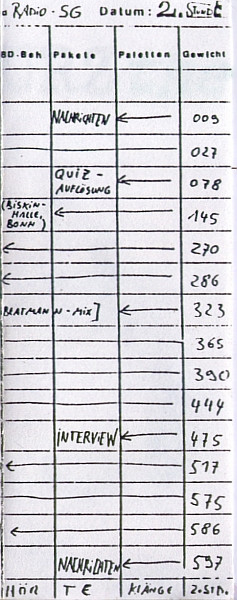 RADIO - SG Datum: 2. STUNDE
BD-Beh Pakete Paletten Gewicht
NACHRICHTEN 009
027
QUIZ-
AUFLÖSUNG 078
(BISKIN-
HALLE,
BONN) 145
270
286
BEATMANN-MIX] 323
365
390
444
INTERVIEW 475
517
575
586
NACHRICHTEN 597
HÖR TE KLÄNGE 2.STD.